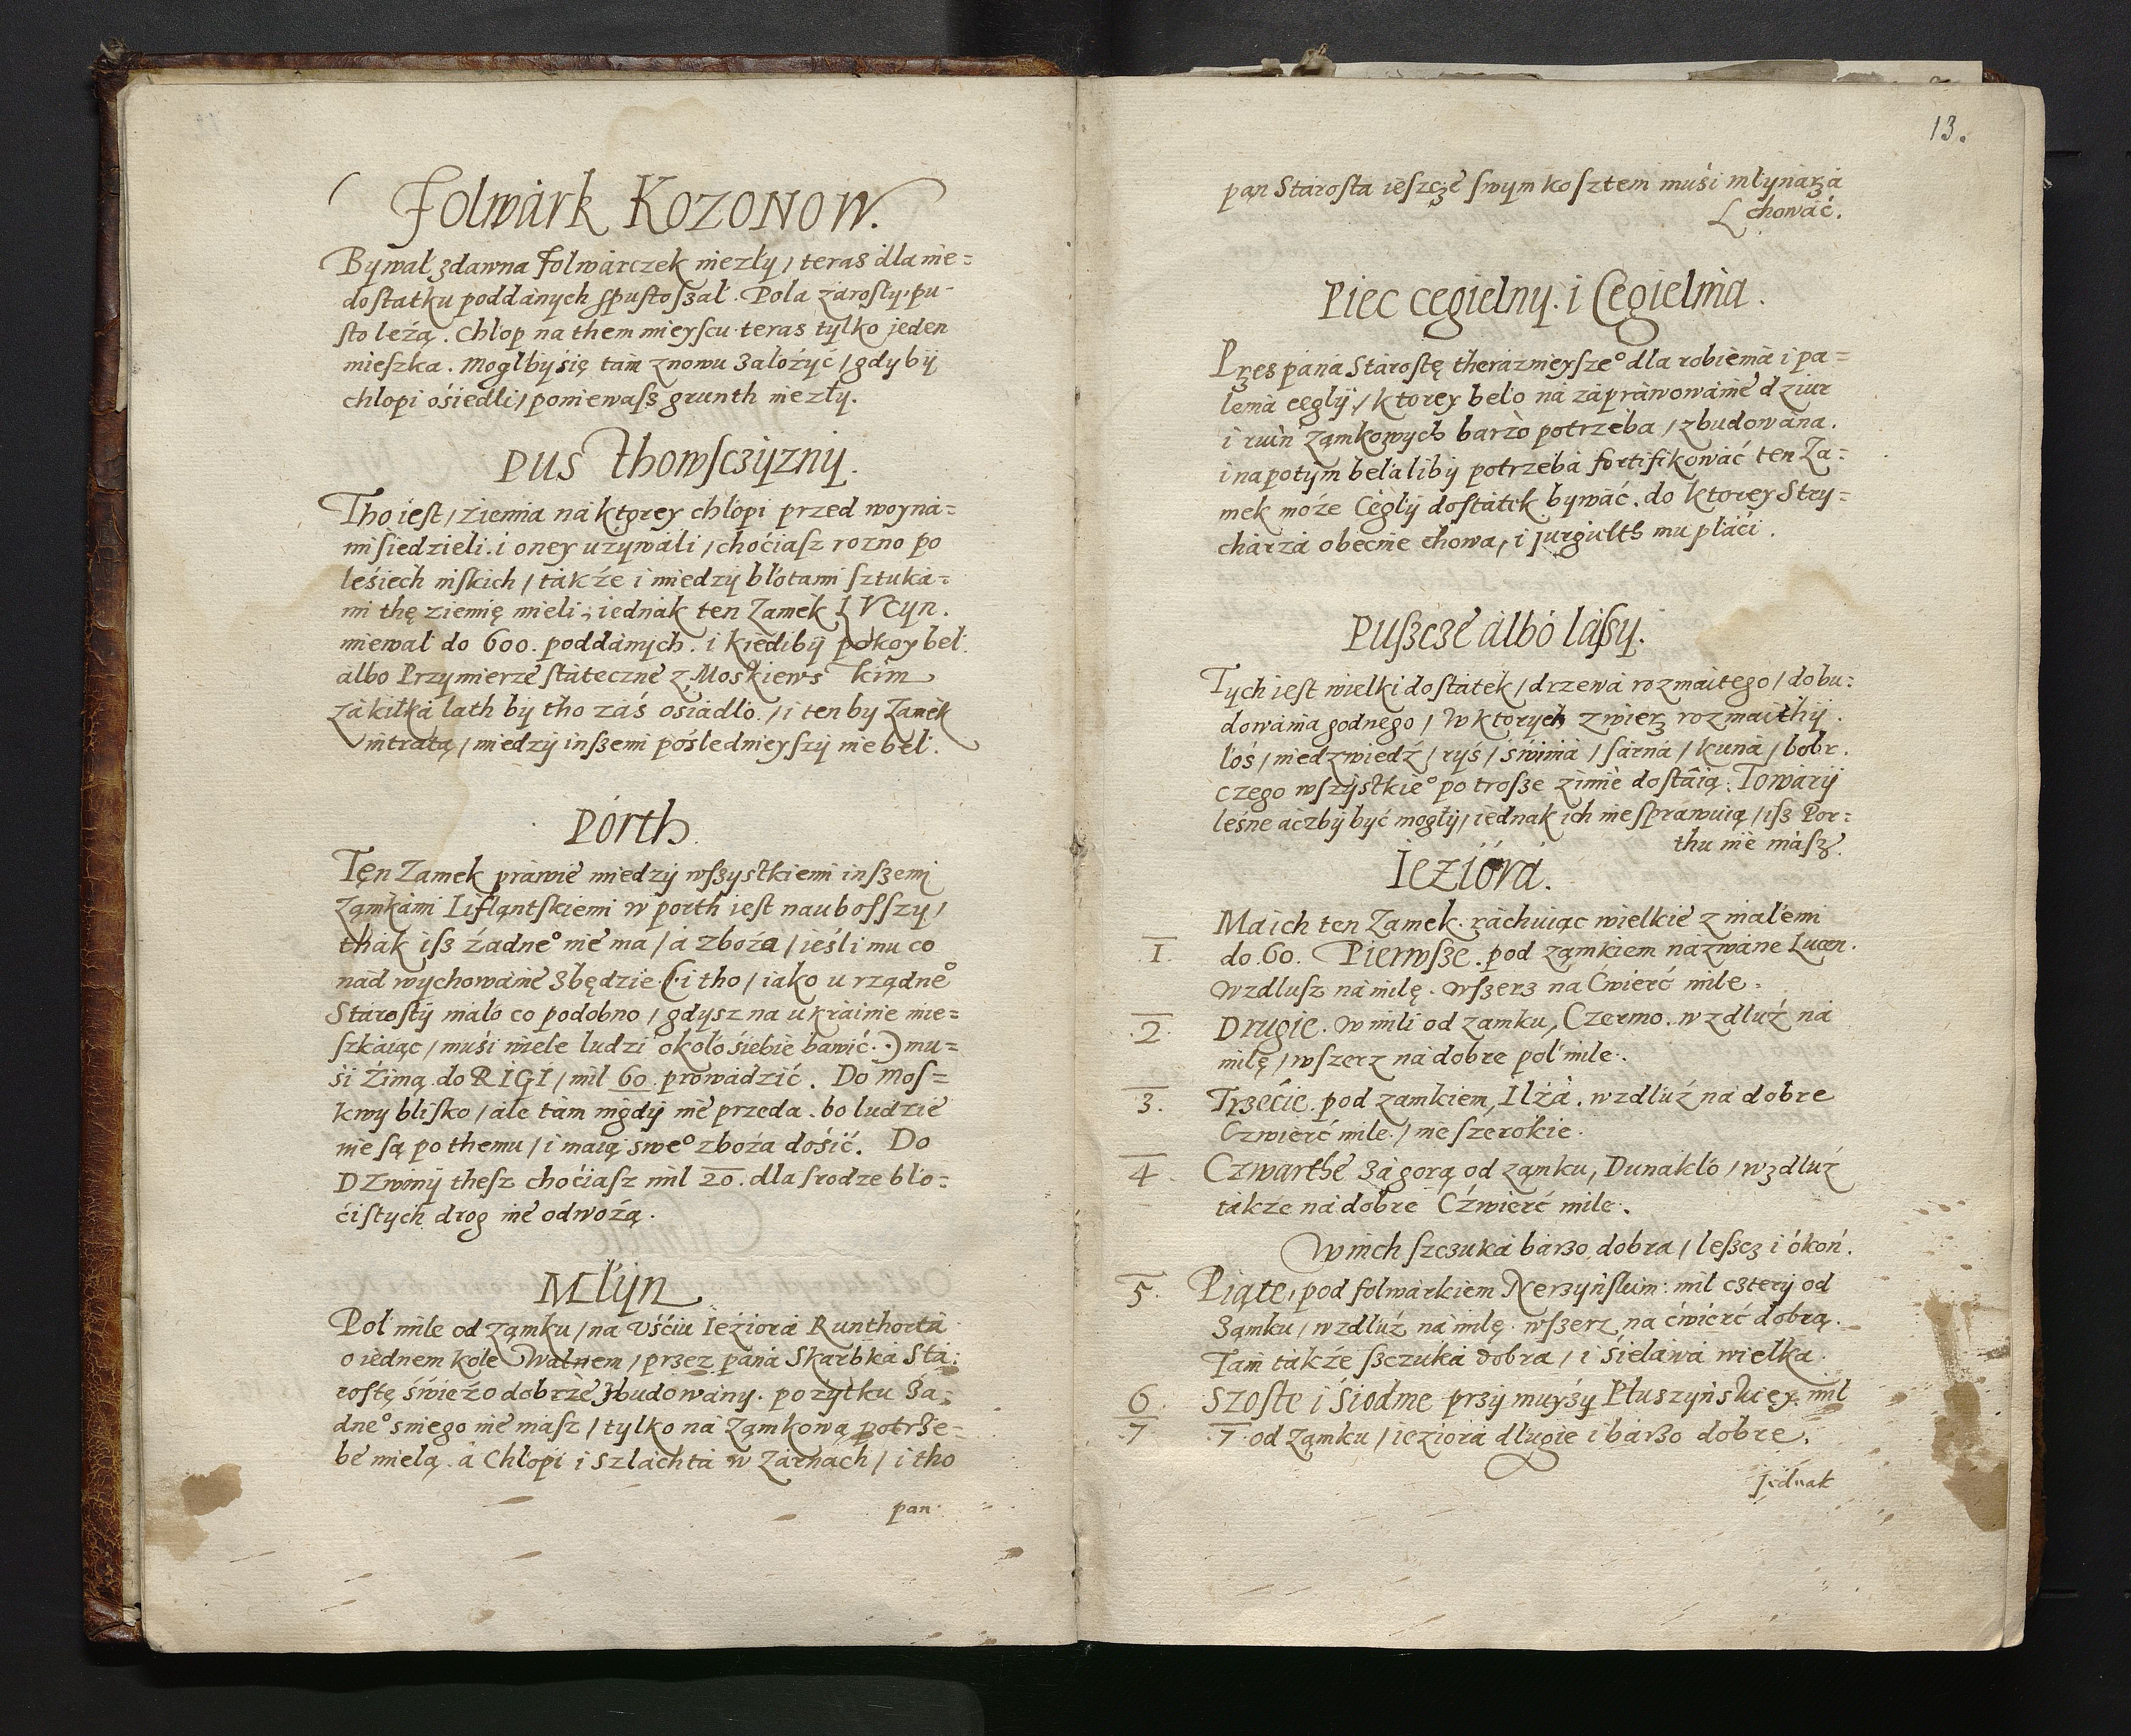 Folwárk KOZONOW.
Bywał zdawna Folwárczek niezły / teras dla nie=
dostatku poddánych spustoszał. Pola zárosly, pu-
sto leżą. Chłop na them mieyscu teras tylko jeden
mieszka. Mogłby się tám znowu záłożyć / gdyby
chłopi ośiedli / poniewasz grunth niezły.
PUSThowsczyzny.
Tho iest / ziemia ná ktorey chłopi przed woyná=
mi siedzieli. i oney uzywáli / choćiasz rozno po
leśiech niskich / tákże i miedzy błotámi sztuká=
mi thę ziemię mieli; iednák ten Zamek LVcyn.
miewał do 600. poddánych. i kiediby pokoy beł.
álbo Przymierze státeczne z Moskiewskim
zá kilká lath by tho záś ośiádło. / i ten by Zamek
intratą / miedzy inszemi pośledmieyszy nie beł.
Pórth.
Ten Zamek práwie miedzy wszystkiemi inszemi
Zamkámi Liflantskiemi w porth iest naubosszy /
thák isz żadne° nie ma / á zboża / ieśli mu co
nád wychowánie zbędzie (. i tho / iáko u rządne°
Stárosty máło co podobno / gdysz na ukráinie mie=
szkáiąc / muśi wiele ludzi około śiebie báwić .) mu=
śi Zimą do RIGI / mil 60. prowádzić. Do Mos=
kwy blisko / ále tám nigdy nie przeda. bo ludzie
nie są po themu / i máią swe° zboża dośić. Do
DZwiny thesz choćiasz mil 20. dla srodze bło=
ćistych drog nie odwożą.
Młyn
Poł mile od zamku / na Vśćiu Ieźiorá Runthortá
o iednem kole Walnem / przez páná Skarbka Stá=
rostę świeżo dobrze zbudowány. pożytku żá=
dne° sniego nie masz / tylko ná Zamkową potrze=
be mielą. á Chłopi i Szláchtá w Zárnách / i tho
pan
13.
pan Stárosta ieszcze swym kosztem muśi młynarzá
chowáć.
Piec cegielny. i Cegielnia.
Przes páná Stárostę theráznieysze° dla robienia i pa=
lenia cegly / ktorey beło ná zápráwowánie dziur
i ruin Zamkowych barzo potrzebá / zbudowána.
i napotym bełáliby potrzebá fortifikowáć ten Za=
mek może Cegły dostátek bywáć. do ktorey Stry=
chárzá obecnie chowa, i jurgielth mu płáći.
Puszcze álbo lásy.
Tych iest wielki dostátek / drzewá rozmáitego / do bu=
dowánia godnego / W ktorych zwierz rozmáithy.
łoś / niedzwiedź / ryś / świniá / sárná / kuná / bobr.
czego wszystkie° po trosze zimie dostáią. Towáry
leśne áczby być mogły / iednák ich nie spráwuią / isz Por=
thu nie mász.
Ieźiórá.
Ma ich ten Zamek ráchuiąc wielkie z máłemi
1. do 60. Pierwsze pod zamkiem názwáne Lucen.
Wzdłusz ná milę. wszerz na Ćwierć mile.
2. Drugie. W mili od zamku, Czermo. wzdłuż ná
milę / wszerz ná dobre poł mile.
3. Trzećie. pod zamkiem, Ilżá. wzdłuż ná dobre
Czwierć mile / nie szerokie.
4. Czwarthe zá gorą od zamku, Dunákło / wzdłuż
tákże ná dobre Czwierć mile.
W nich szczuká bárzo dobra / leszcz i okoń.
5. Piąte, pod folwárkiem Nerzyńskim: mil cztery od
zamku / wzdłuż ná milę. wszerz na ćwierć dobrą.
Tám tákże szczuká dobra / i śieláwá wielka.
6. Szoste i Siodme przy muyży Płuszyńskiey. mil
7. 7. od Zamku / ieźiorá długie i bárzo dobre.
Jednak